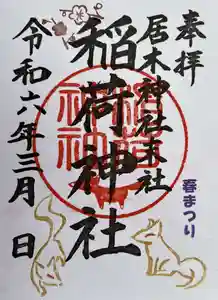 奉拝
居木神社末社
春まつり
稲荷神社
令和六年三月 日